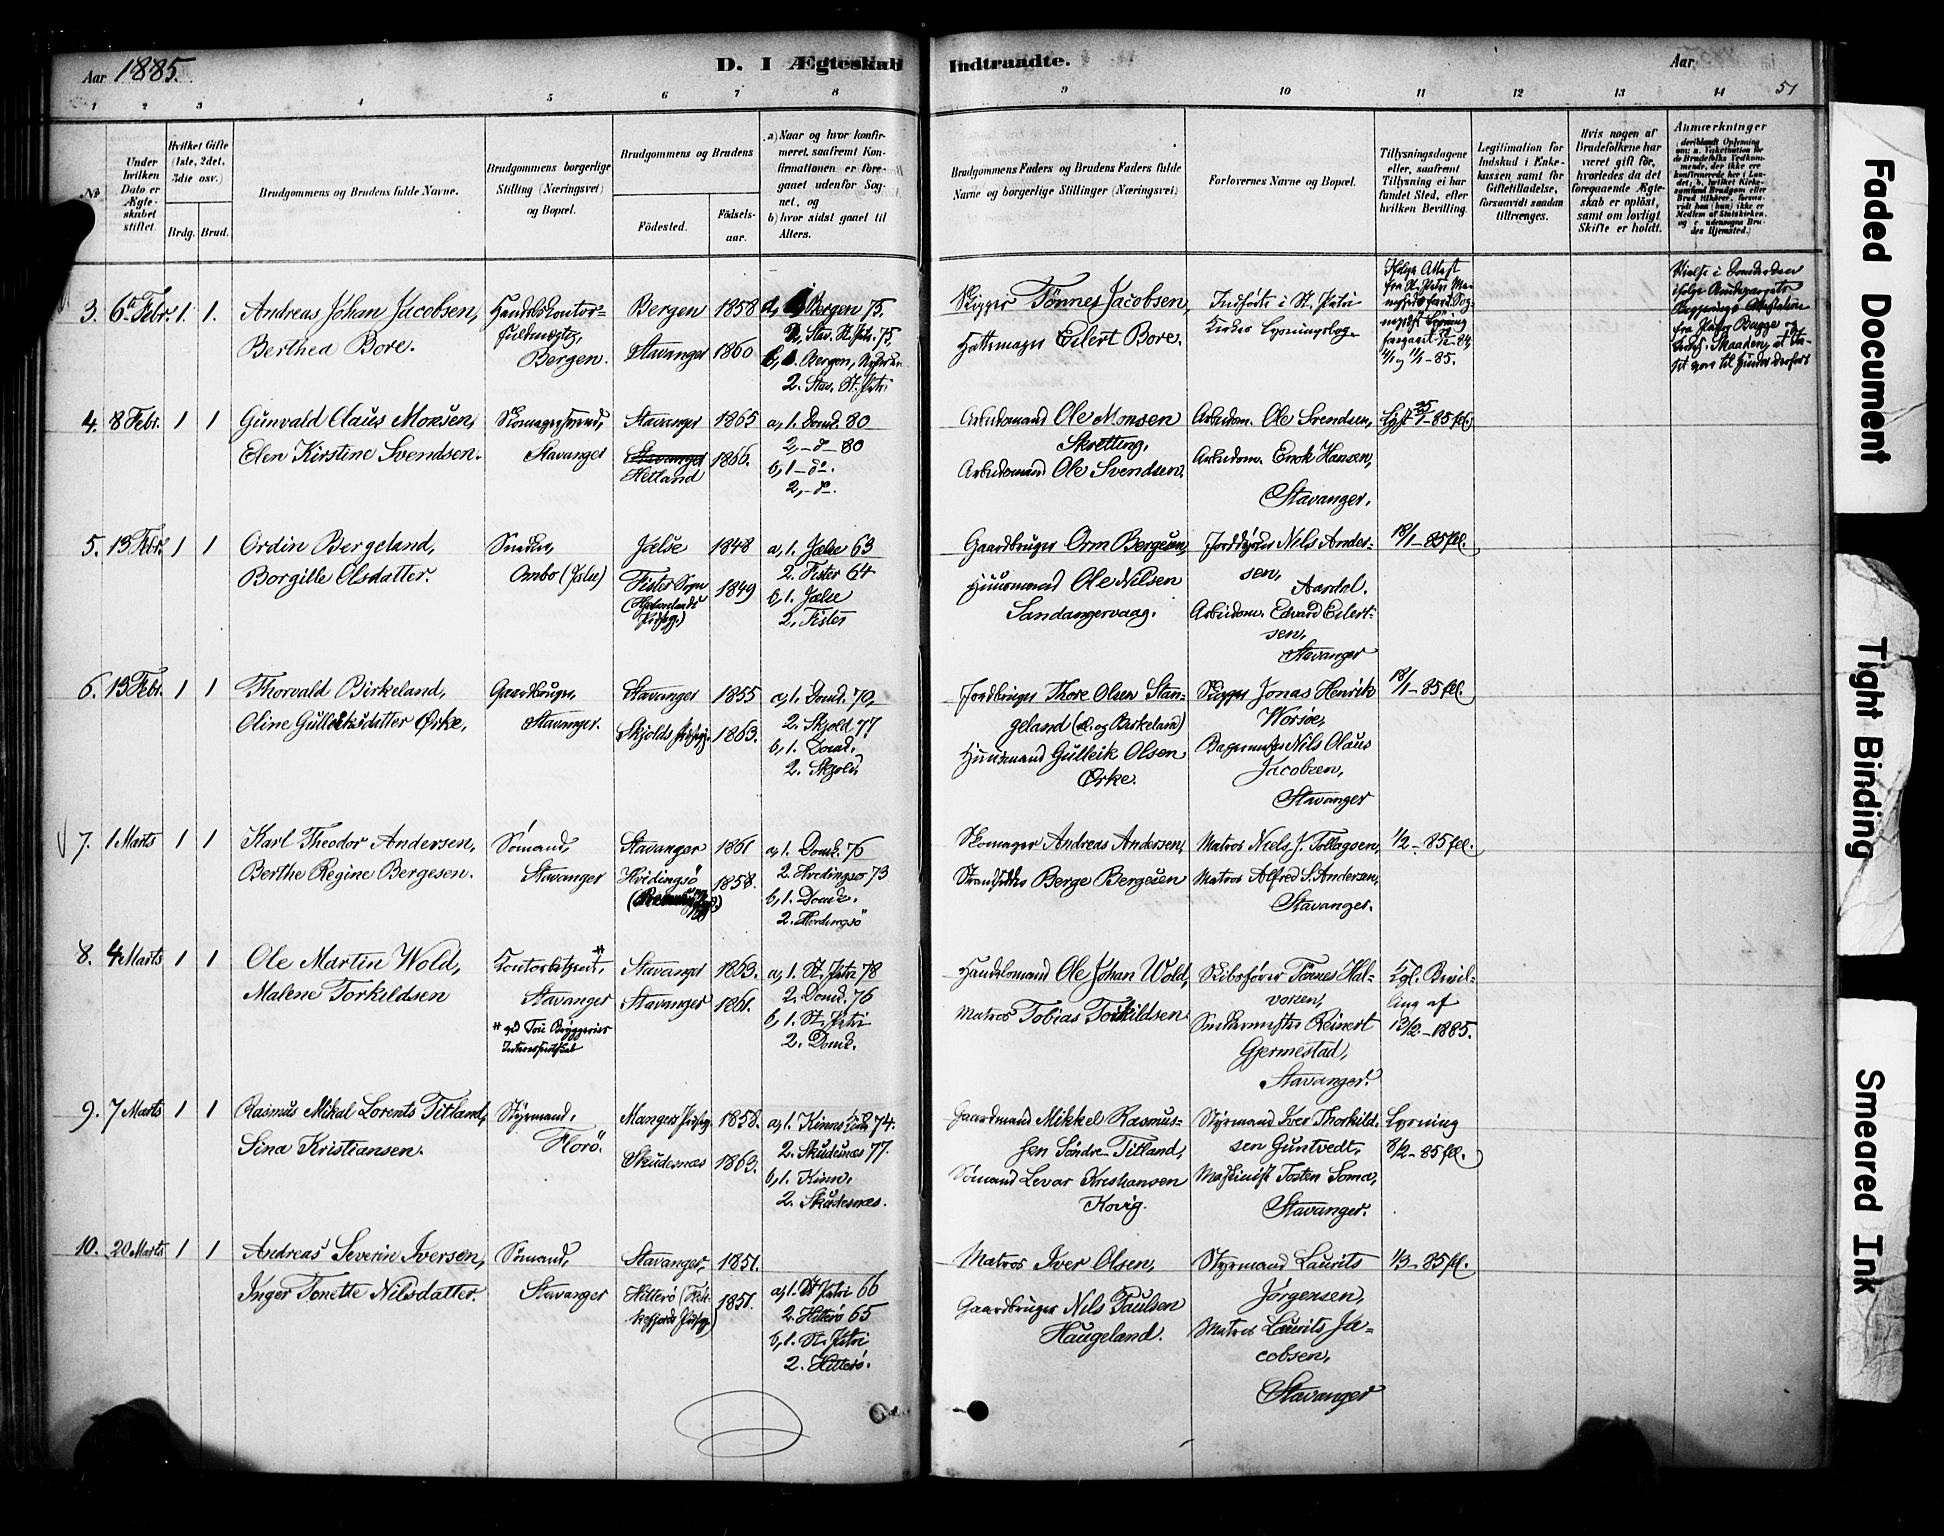 Aar 1885.
D. I Ægteskab Indtraadte.
Aar
1 2 3 4 5 6 7 8 9 10 11 12 13 14 51
No
Under hvilken Dato er Ægteskabet stiftet.
Hvilket Gifte (1ste, 2det, 3die osv.)
Brdg. Brud.
Brudgommens og Brudens fulde Navne.
Brudgommens borgerlige Stilling (Næringsvei) og Bopæl.
Brudgommens og Brudens
Fødested.
Fødselsaar.
a) Naar og hvor konfirmeret, saafremt Konfirmationen er foregaaet udenfor Sognet, og
b) hvor sidst gaaet til Alters.
Brudgommens Faders og Brudens Faders fulde Navne og borgerlige Stillinger (Næringsvei)
Forlovernes Navne og Bopæl.
Tillysningsdagene eller, saafremt Tillysning ei har fundet Sted, efter hvilken Bevilling.
Legitimation for Indskud i Enkekassen samt for Giftetilladelse, forsaavidt saadan tiltrænges.
Hvis nogen af Brudefolkene har været gift før, hvorledes da det foregaaende Ægteskab er opløst, samt om lovligt Skifte er holdt.
Anmærkninger
3. 6te Febr. 1. 1.
Andreas Johan Jacobsen,
Berthea Bore.
Handelskontor-
fuldmægtig,
Bergen.
Bergen 1858
Stavanger 1860
a, 1. Bergen 75.
2. Stav. St. Petri 75,
b, 1. Bergen,
2. Stav. St. Petri
Skipper Tönnes Jacobsen,
Hattemager Eilert Bore.
Indførte i St. Petri
Kirkes Lysningsbog
4. 8 Febr. 1 1
Gunvald Claus Monsen,
Elen Kirstine Svendsen.
Skomagersvend,
Stavanger
Stavanger 1865
Stavanger 1866.
Hetland
a, 1. Domk. 80
2, - do - 80
b, 1 - do -
2, - do -
Arbeidsmand Ole Monsen
Skretting,
Arbeidsmand Ole Svendsen.
Arbeidsm. Ole Svendsen,
Arbeidsm. Enok Hansen,
Stavanger.
Lyst 25/1-85 fl.
5. 13 Febr. 1 1
Ordin Bergeland,
Borgille Olsdatter.
Smed,
Ombo (Jelse)
Jelse 1848
Fister Sogn 1849
a, 1. Jelse 63
2. Fister 64
b, 1. Jelse
2, Fister
Gaardbruger Orm Bergesen,
Huusmand Ole Nilsen
Sandangervaag.
Jorddyrker Nils Ander-
sen,
Aardal.
Arbeidsm. Edvard Eilert-
sen,
Stavanger
18/1-85 fl.
6. 13 Febr. 1 1
Thorvald Birkeland,
Oline Gulleiksdatter Ørke,
Gaardbruger,
Stavanger.
Stavanger 1855
Skjolds Præstg. 1863.
a, 1. Domk. 70,
2. Skjold 77
b, 1. Domk.
2. Skjold
Jordbruger Thore Olsen Stan-
geland (og Birkeland)
Huusmand Gulleik Olsen
Ørke.
Skipper Jonas Henrik
Worsöe,
Bagermester Nils Olaus
Jacobsen,
Stavanger
18/1-85 fl.
7. 1 Marts 1 1
Karl Theodor Andersen,
Berthe Regine Bergesen.
Sömand,
Stavanger
Stavanger 1861
Hvidingsö 1858.
a, 1. Domk. 76
2. Hvidingsö 73
b, 1. Domk.
2. Hvidingsö
Skomager Andreas Andersen,
Strandsidder Berge Bergesen
Matros Niels J. Tollagsen,
Matros Alfred S. Andersen,
Stavanger.
1/2-85 fl.
8. 4 Marts 1 1
Ole Martin Wold,
Malene Torkildsen
Kontorbetjent, #
Stavanger
# ved Tou Bryggeries
Interessentskab
Stavanger 1863.
Stavanger 1861.
a, 1. St. Petri 78
2. Domk. 76
b, 1. St. Petri
2. Domk.
Handelsmand Ole Johan Wold,
Matros Tobias Torkildsen
Skibsfører Tönnes Hal-
vorsen,
Snedkermester Reinert
Gjermestad,
Stavanger.
Kgl. Bevil-
ling af
13/2-1885.
9. 7 Marts 1 1
Rasmus Mikal Lorents Titland,
Sina Kristiansen.
Styrmand,
Florö.
Manger Præstg. 1858.
Skudesnæs 1863.
a, 1. Kinn 74.
2. Skudesnæs 77.
b, 1. Kinn.
2. Skudesnæs.
Gaardmand Mikkel Rasmus-
sen Söndre Titland,
Sömand Levar Kristiansen
Kovig.
Styrmand Iver Thorkild-
sen Guntvedt,
Maskinist Tosten Soma,
Stavanger.
Lysning
8/2-85 fl.
10. 20 Marts 1 1
Andreas Severin Iversen,
Inger Tonette Nilsdatter.
Sömand,
Stavanger
Stavanger, 1851.
Hitterö (Flek- 1851.
kefjords Præstg.)
a, 1. St. Petri 66
2. Hitterö 65
b, 1. St. Petri
2. Hitterö.
Matros Iver Olsen,
Gaardbruger Nils Paulsen
Haugeland.
Styrmand Laurits
Jörgensen,
Matros Laurits Ja-
cobsen,
Stavanger
1/3-85 fl.
Faded Document
Tight Binding
Smeared Ink